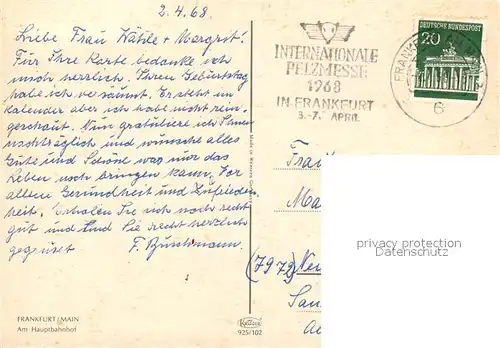 2.4.68.
Liebe Frau Käthle + Margret!
Für Ihre Karte bedanke ich
mich herzlich. Ihren Geburtstag
habe ich versäumt. Er steht im
Kalender aber ich habe nicht rein-
geschaut. Nun gratuliere ich Ihnen
nachträglich und wünsche alles
Gute und Schöne was nur das
Leben noch bringen kann. Vor
allem Gesundheit und Zufrieden-
heit. Erholen Sie sich noch recht
gut und sind Sie recht herzlich
gegrüsst F. Buschmann
FRANKFURT/MAIN
Am Hauptbahnhof
Krüger
925/102
INTERNATIONALE
PELZMESSE
1968
IN FRANKFURT
3.-7. APRIL
FRANKFURT
6
DEUTSCHE BUNDESPOST
20
Ma
(7972)
privacy protection
Datenschutz